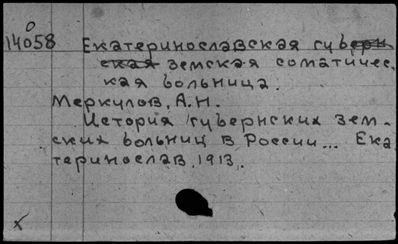 0
14058 Екатеринославская губерн
ская земская соматичес
кая больница.
Меркулов, А.Н.
История губернских зем-
ских больниц в России... Ека
теринослав, 1913.
x